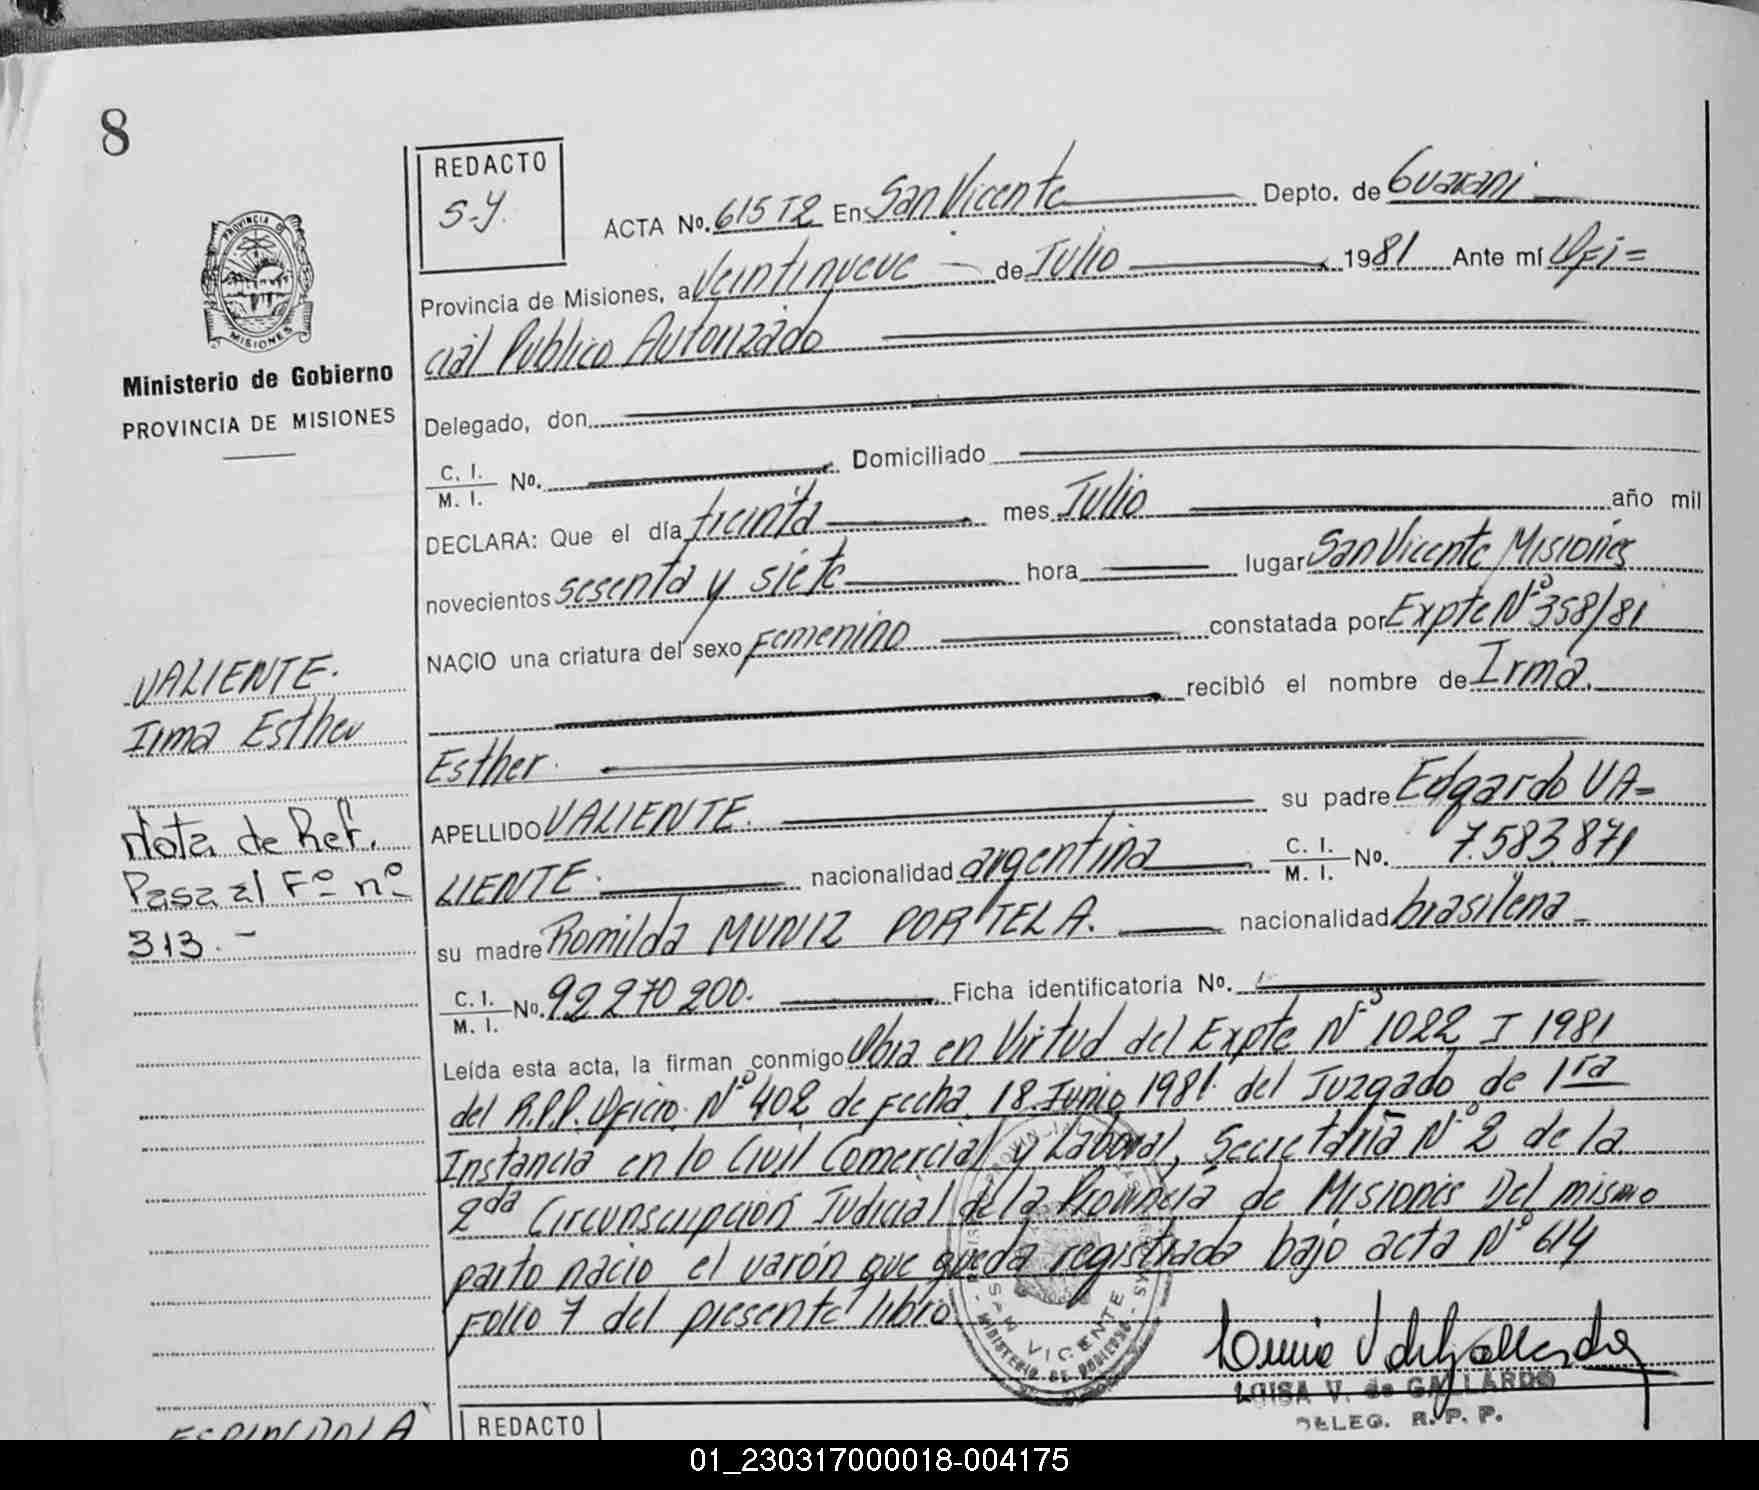 8
REDACTO
S.y.
ACTA No. 615 T2 En San Vicente Depto. de Guarani
Provincia de Misiones, a Veintinueve de Julio 1981 Ante mí Ofi=
cial Público Autorizado
Delegado, don
C. I. / M. I. No. Domiciliado
DECLARA: Que el día treinta mes Julio año mil
novecientos sesenta y siete hora lugar San Vicente Misiones
NACIO una criatura del sexo Femenino constatada por Expte Nº 358/81
recibió el nombre de Irma
Esther.
APELLIDO VALIENTE. su padre Edgardo VA=
LIENTE. nacionalidad argentina C. I. / M. I. No. 7.583.871
su madre Romilda MUNIZ PORTELA. nacionalidad brasilena
C. I. / M. I. No. 92270200. Ficha identificatoria No.
Leída esta acta, la firman conmigo Obra en Virtud del Expte Nº 1022 I 1981
del R.P.P. Oficio Nº 402 de fecha 18 Junio 1981. del Juzgado de 1ra
Instancia en lo Civil Comercial y Laboral, Secretaria Nº 2 de la
2da Circunscripción Judicial de la Provincia de Misiones Del mismo
parto nacio el varón que queda registrada bajo acta Nº 614
Folio 7 del presente libro
PROVINCIA DE
MISIONES
Ministerio de Gobierno
PROVINCIA DE MISIONES
VALIENTE.
Irma Esther
Nota de Ref.
Pasa al Fº nº
313.-
SAN VICENTE
MINISTERIO DE GOBIERNO
LUISA V. de GALLARDO
DELEG. R. P. P.
ESPINDOLA
REDACTO
01_230317000018-004175